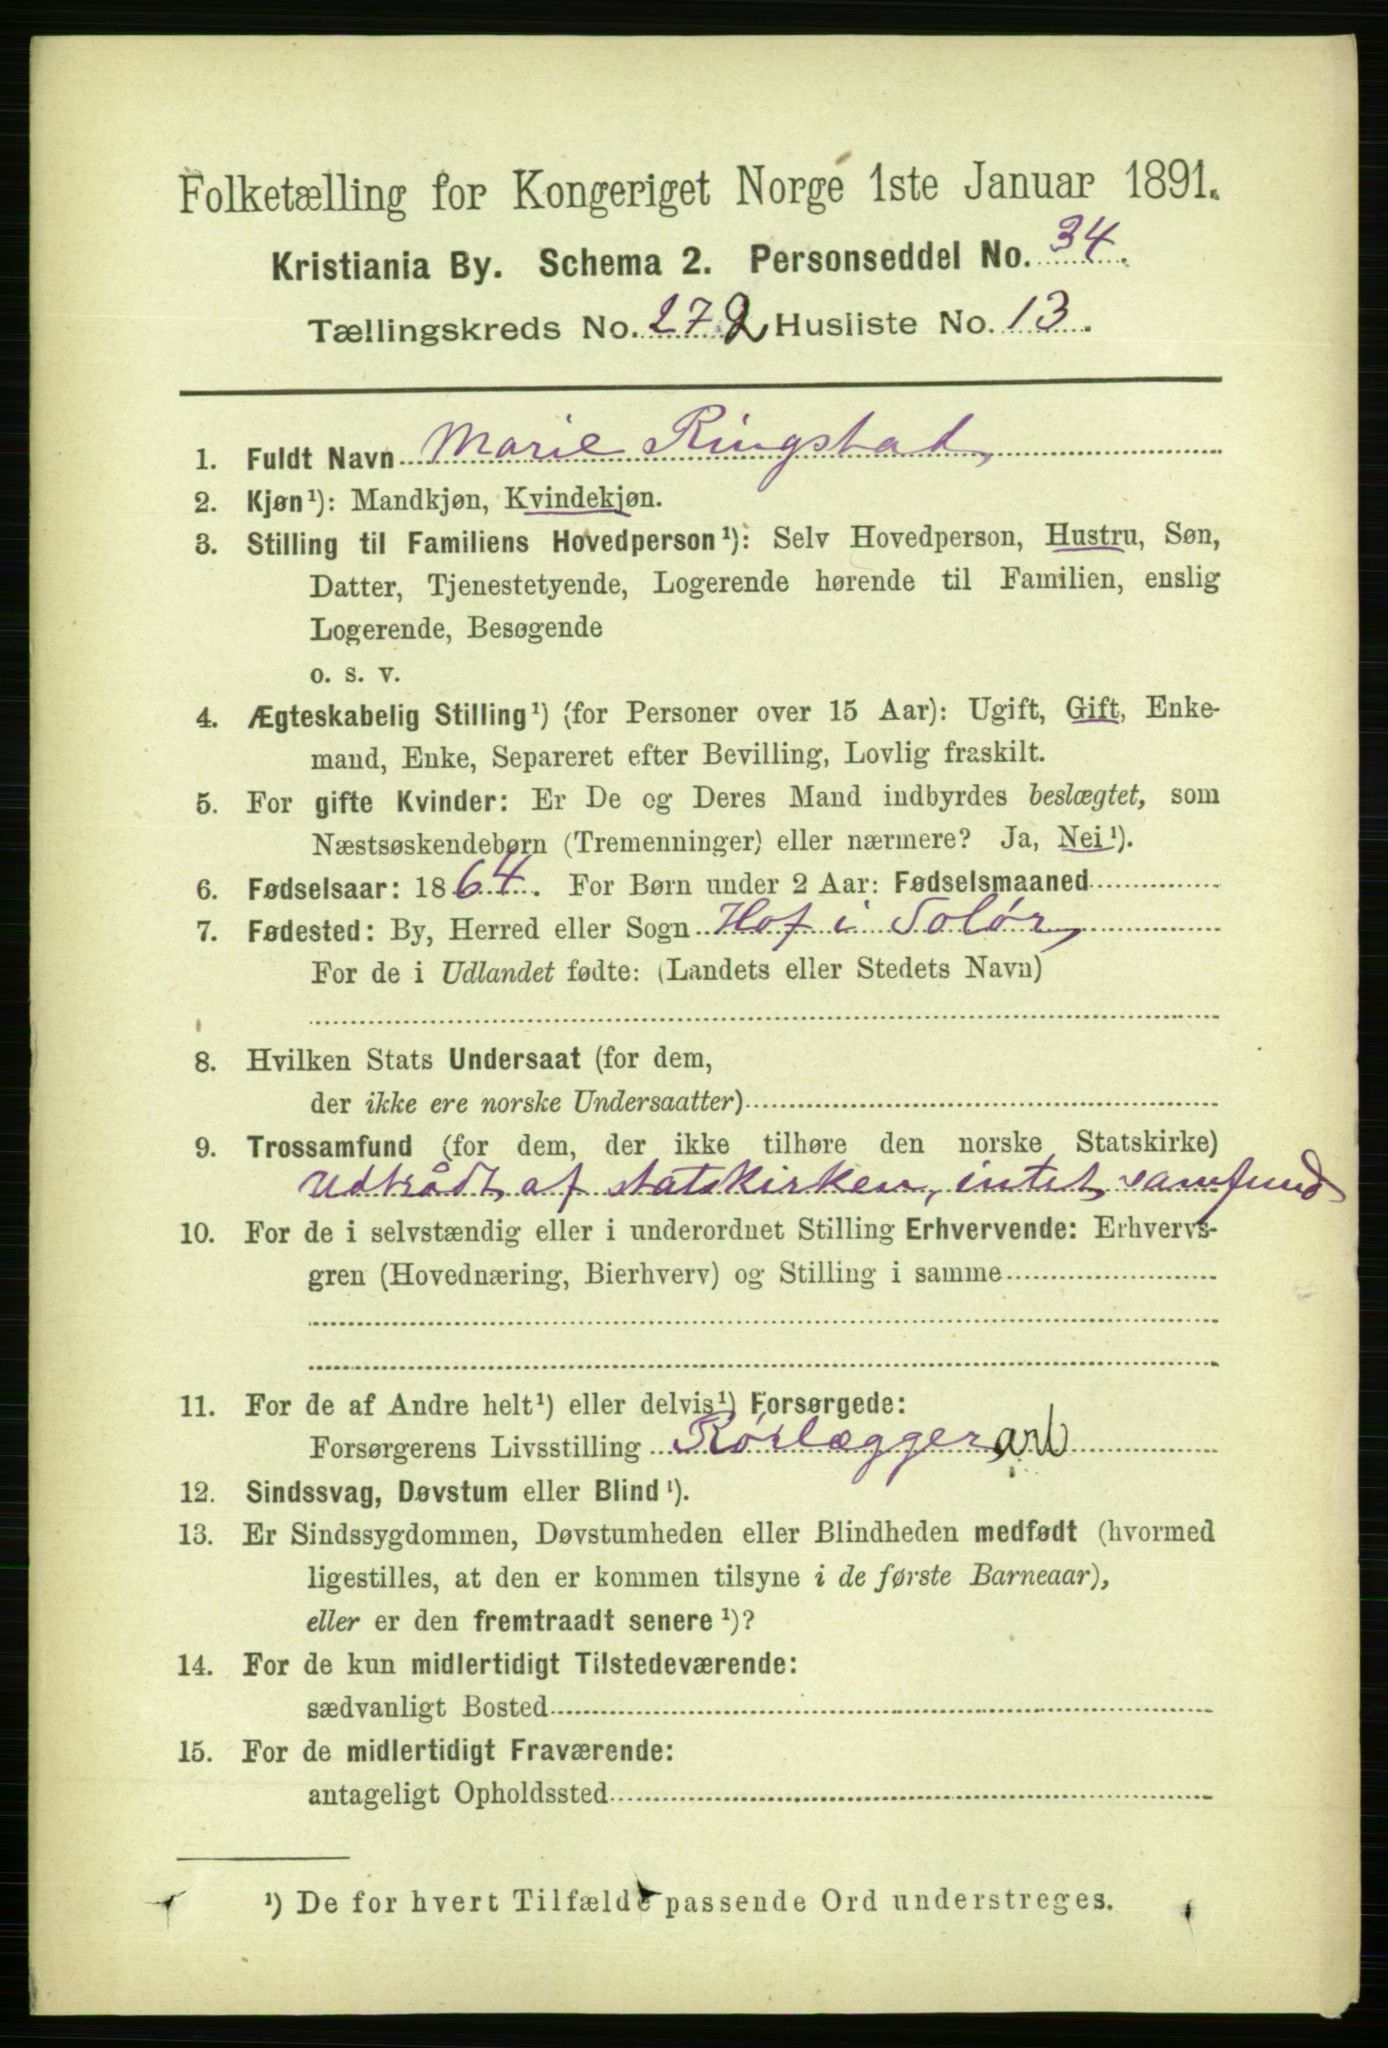 Folketælling for Kongeriget Norge 1ste Januar 1891.
Kristiania By. Schema 2. Personseddel No. 34.
Tællingskreds No. 272 Husliste No. 13.
1. Fuldt Navn Marie Ringstad,
2. Kjøn¹): Mandkjøn, Kvindekjøn.
3. Stilling til Familiens Hovedperson¹): Selv Hovedperson, Hustru, Søn,
Datter, Tjenestetyende, Logerende hørende til Familien, enslig
Logerende, Besøgende
o. s. v.
4. Ægteskabelig Stilling¹) (for Personer over 15 Aar): Ugift, Gift, Enke-
mand, Enke, Separeret efter Bevilling, Lovlig fraskilt.
5. For gifte Kvinder: Er De og Deres Mand indbyrdes beslægtet, som
Næstsøskendebørn (Tremenninger) eller nærmere? Ja, Nei¹).
6. Fødselsaar: 1864. For Børn under 2 Aar: Fødselsmaaned
7. Fødested: By, Herred eller Sogn Hof i Solør,
For de i Udlandet fødte: (Landets eller Stedets Navn)
8. Hvilken Stats Undersaat (for dem,
der ikke ere norske Undersaatter)
9. Trossamfund (for dem, der ikke tilhøre den norske Statskirke)
Udtrådt af statskirken, intet samfund
10. For de i selvstændig eller i underordnet Stilling Erhvervende: Erhvervs-
gren (Hovednæring, Bierhverv) og Stilling i samme
11. For de af Andre helt¹) eller delvis¹) Forsørgede:
Forsørgerens Livsstilling Rørlæggerarb
12. Sindssvag, Døvstum eller Blind¹).
13. Er Sindssygdommen, Døvstumheden eller Blindheden medfødt (hvormed
ligestilles, at den er kommen tilsyne i de første Barneaar),
eller er den fremtraadt senere¹)?
14. For de kun midlertidigt Tilstedeværende:
sædvanligt Bosted
15. For de midlertidigt Fraværende:
antageligt Opholdssted
¹) De for hvert Tilfælde passende Ord understreges.